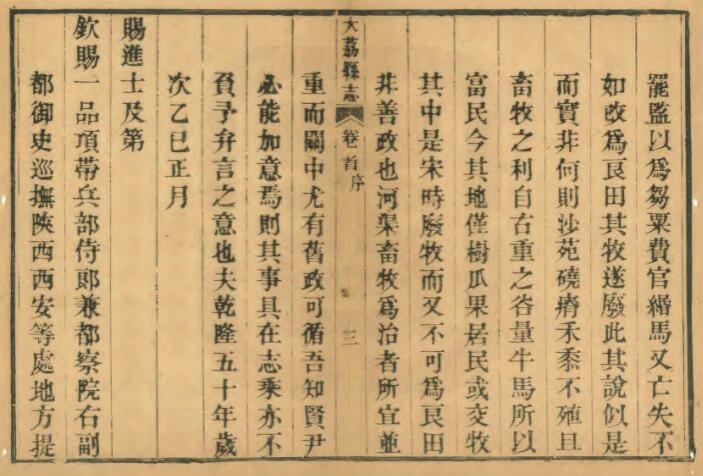 罷監以爲芻粟費官緡馬又亡失不
如改爲良田其牧遂廢此其說似是
而實非何則沙苑磽瘠禾黍不殖且
畜牧之利自古重之谷量牛馬所以
富民今其地僅樹瓜果居民或交牧
其中是宋時廢牧而又不可爲良田
非善政也河渠畜牧爲治者所宜並
大荔縣志
卷首序
三
重而關中尤有舊政可循吾知賢尹
必能加意焉則其事具在志乘亦不
負予弁言之意也夫乾隆五十年歲
次乙巳正月
賜進士及第
欽賜一品頂帶兵部侍郎兼都察院右副
都御史巡撫陝西西安等處地方提